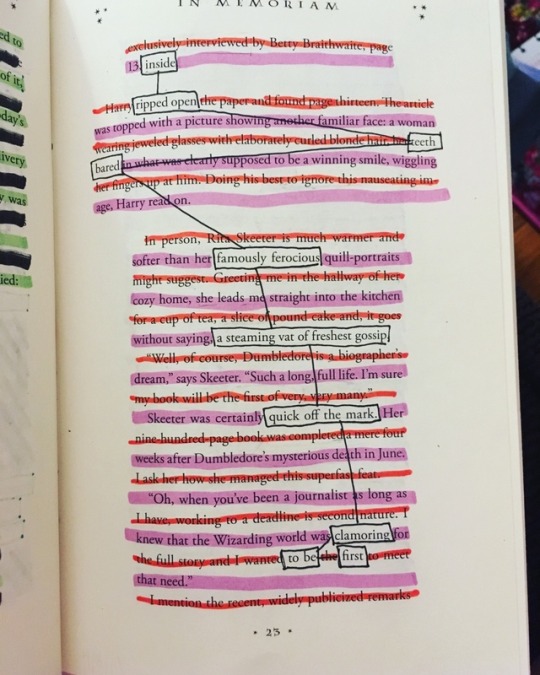 IN MEMORIAM
exclusively interviewed by Betty Braithwaite, page
13, inside
Harry ripped open the paper and found page thirteen. The article
was topped with a picture showing another familiar face: a woman
wearing jeweled glasses with elaborately curled blonde hair, her teeth
bared in what was clearly supposed to be a winning smile, wiggling
her fingers up at him. Doing his best to ignore this nauseating im-
age, Harry read on.
In person, Rita Skeeter is much warmer and
softer than her famously ferocious quill-portraits
might suggest. Greeting me in the hallway of her
cozy home, she leads me straight into the kitchen
for a cup of tea, a slice of pound cake and, it goes
without saying, a steaming vat of freshest gossip.
"Well, of course, Dumbledore is a biographer's
dream," says Skeeter. "Such a long, full life. I'm sure
my book will be the first of very, very many."
Skeeter was certainly quick off the mark. Her
nine-hundred-page book was completed a mere four
weeks after Dumbledore's mysterious death in June.
I ask her how she managed this superfast feat.
"Oh, when you've been a journalist as long as
I have, working to a deadline is second nature. I
knew that the Wizarding world was clamoring for
the full story and I wanted to be the first to meet
that need."
I mention the recent, widely publicized remarks
• 23 •
ed to
of it,
oday's
livery
y was
ied: